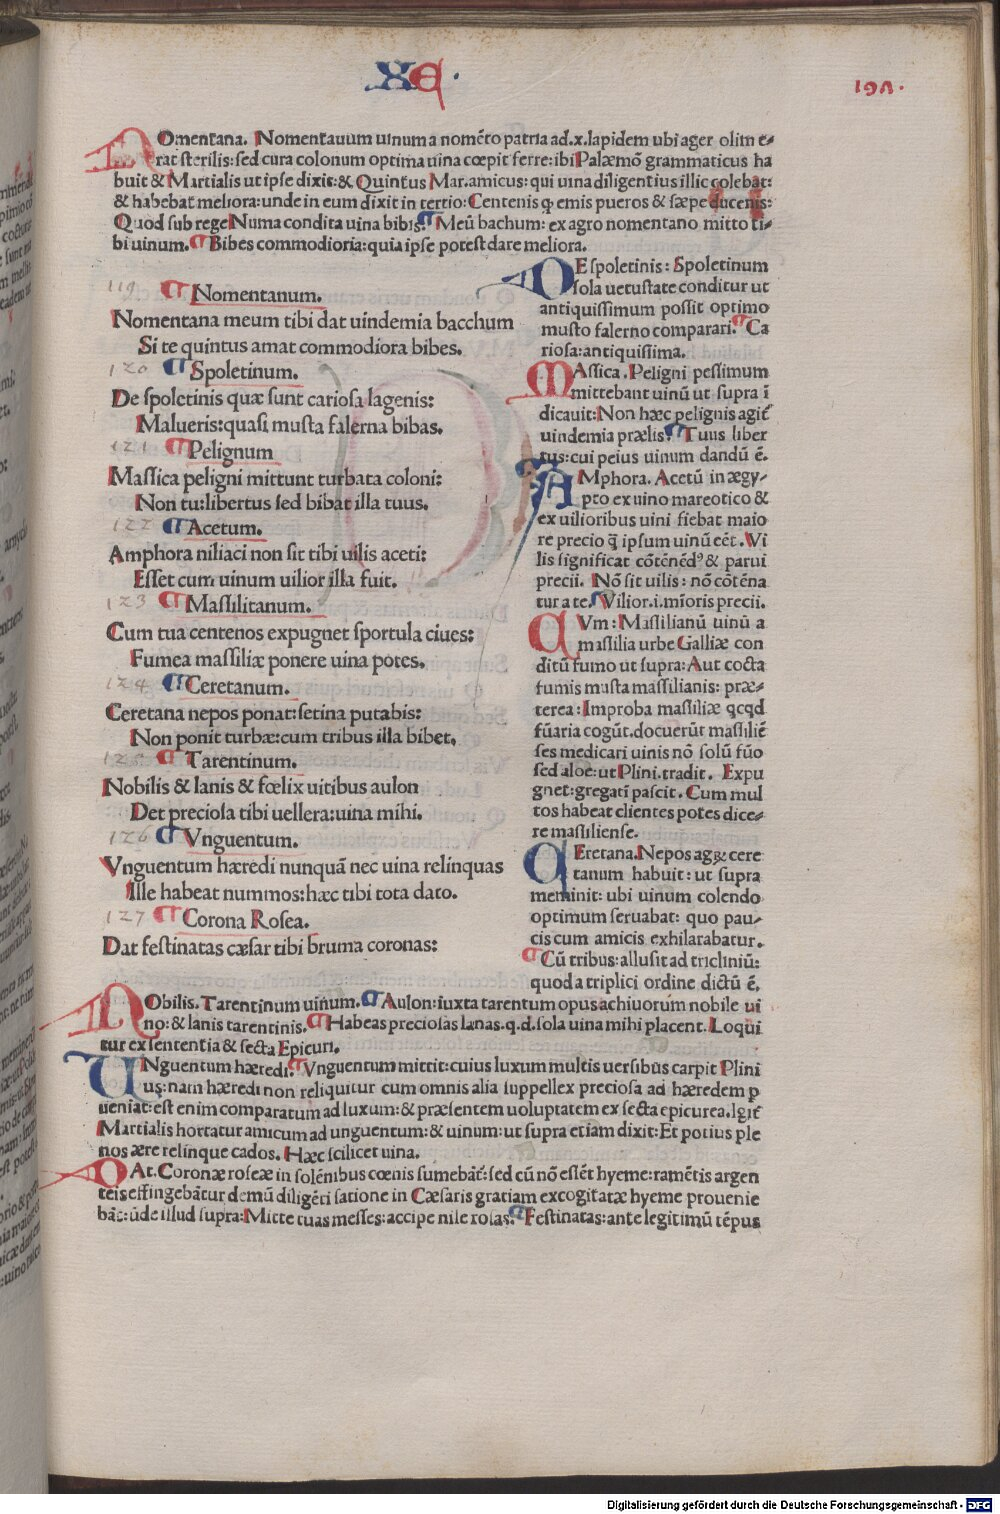 XE.
191.
NOmentana. Nomentauum uinum a nomēto patria ad.x.lapidem ubi ager olim e-
rat sterilis: sed cura colonum optima uina cœpit ferre: ibi Palæmō grammaticus ha
buit & Martialis ut ipse dixit: & Quintus Mar.amicus: qui uina diligentius illic colebat:
& habebat meliora: unde in eum dixit in tertio: Centenis ꝙ emis pueros & sæpe ducenis:
Quod sub rege Numa condita uina bibis. ¶ Meū bachum: ex agro nomentano mitto ti-
bi uinum. ¶ Bibes commodiora: quia ipse potest dare meliora.
119 ¶ Nomentanum.
Nomentana meum tibi dat uindemia bacchum
Si te quintus amat commodiora bibes.
120 ¶ Spoletinum.
De spoletinis quæ sunt cariosa lagenis:
Malueris: quasi musta falerna bibas.
121 ¶ Pelignum
Massica peligni mittunt turbata coloni:
Non tu: libertus sed bibat illa tuus.
122 ¶ Acetum.
Amphora niliaci non sit tibi uilis aceti:
Esset cum uinum uilior illa fuit.
123 ¶ Massilitanum.
Cum tua centenos expugnet sportula ciues:
Fumea massiliæ ponere uina potes.
124 ¶ Ceretanum.
Ceretana nepos ponat: setina putabis:
Non ponit turbæ: cum tribus illa bibet.
125 ¶ Tarentinum.
Nobilis & lanis & fœlix uitibus aulon
Det preciosa tibi uellera: uina mihi.
126 ¶ Vnguentum.
Vnguentum hæredi nunquā nec uina relinquas
Ille habeat nummos: hæc tibi tota dato.
127 ¶ Corona Rosea.
Dat festinatas cæsar tibi bruma coronas:
DE spoletinis: Spoletinum
sola uetustate conditur ut
antiquissimum possit optimo
musto falerno comparari. ¶ Ca
riosa: antiquissima.
MAssica. Peligni pessimum
mittebant uinū ut supra ī
dicauit: Non hæc pelignis agit
uindemia prælis. ¶ Tuus liber
tus: cui peius uinum dandū ē.
AMphora. Acetū in ægy-
pto ex uino mareotico &
ex uilioribus uini fiebat maio
re precio ꝗ̄ ipsum uinū eēt. Vi
lis significat cōtēnēdꝰ & parui
precii. Nō sit uilis: nō cōtēna
tur a te. ¶ Vilior.i.mīoris precii.
CVm: Massilianū uinū a
massilia urbe Galliæ con
ditū fumo ut supra: Aut cocta
fumis musta massilianis: præ-
terea: Improba massiliæ qcqd
fūaria cogūt. docuerūt massiliē
ses medicari uinis nō solū fūo
sed aloe: ut Plini. tradit. Expu
gnet: gregatī pascit. Cum mul
tos habeat clientes potes dice-
re massiliense.
CEretana. Nepos agꝝ cere
tanum habuit: ut supra
meminit: ubi uinum colendo
optimum seruabat: quo pau-
cis cum amicis exhilarabatur.
¶ Cū tribus: allusit ad tricliniū:
quod a triplici ordine dictū ē.
NObilis. Tarentinum uinum. ¶ Aulon: iuxta tarentum opus achiuorum nobile ui
no: & lanis tarentinis. ¶ Habeas preciosas lanas.q.d.sola uina mihi placent. Loqui
tur ex sententia & secta Epicuri.
UNguentum hæredi. ¶ Vnguentum mittit: cuius luxum multis uersibus carpit Plini
us: nam hæredi non reliquitur cum omnis alia suppellex preciosa ad hæredem p
ueniat: est enim comparatum ad luxum: & præsentem uoluptatem ex secta epicurea. Igit̄
Martialis hortatur amicum ad unguentum: & uinum: ut supra etiam dixit: Et potius ple
nos ære relinque cados. Hæc scilicet uina.
DAt. Coronæ roseæ in solēnibus cœnis sumebāt: sed cū nō essēt hyeme: ramētis argen
teis effingebātur demū diligēti satione in Cæsaris gratiam excogitatæ hyeme prouenie
bāt: ūde illud supra: Mitte tuas messes: accipe nile rosas. ¶ Festinatas: ante legitimū tēpus
Digitalisierung gefördert durch die Deutsche Forschungsgemeinschaft - DFG